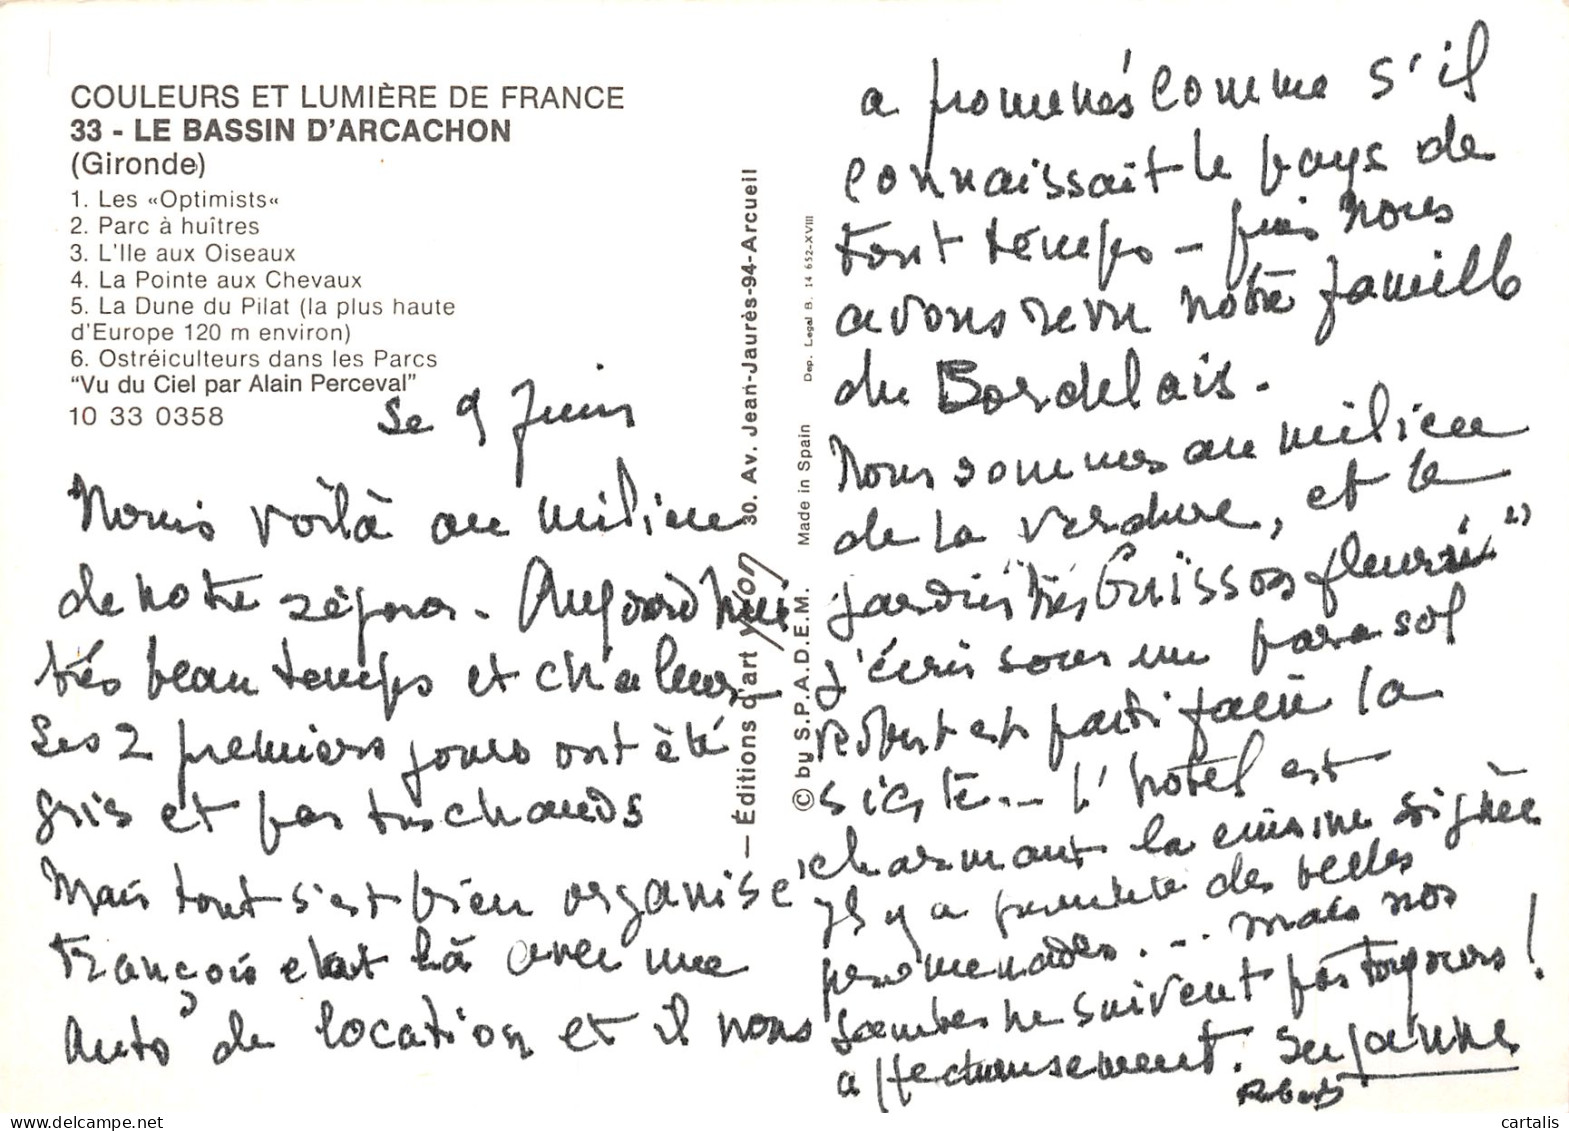 COULEURS ET LUMIÈRE DE FRANCE
33 - LE BASSIN D'ARCACHON
(Gironde)
1. Les «Optimists«
2. Parc à huîtres
3. L'Ile aux Oiseaux
4. La Pointe aux Chevaux
5. La Dune du Pilat (la plus haute
d'Europe 120 m environ)
6. Ostréiculteurs dans les Parcs
"Vu du Ciel par Alain Perceval"
10 33 0358
Le 9 Juin
Nous voilà au milieu
de notre séjour. Aujourd'hui
très beau temps et chaleur
Les 2 premiers jours ont été
gris et pas très chauds
Mais tout s'est bien organisé
François était là avec une
auto de location et il nous
— Éditions d'art yvon 30. Av. Jean-Jaurès-94-Arcueil
© by S.P.A.D.E.M. Made in Spain Dep. Legal B. 14 652-XVIII
a promenés comme s'il
connaissait le pays de
tout temps - puis nous
avons revu notre famille
du Bordelais.
Nous sommes au milieu
de la verdure, et le
jardin très fleuri
j'écris sous un parasol
Robert est parti faire la
sieste... l'hôtel est
charmant la cuisine soignée
Il y a de belles
promenades... mais nos
jambes ne suivent pas toujours !
affectueusement. Suzanne
Robert
cartalis